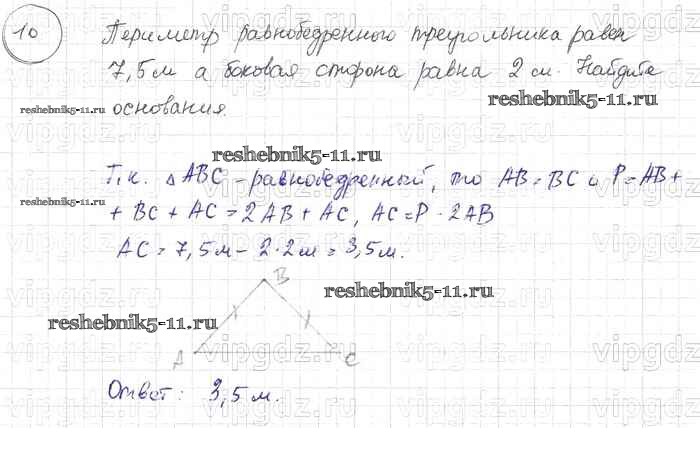 10
Периметр равнобедренного треугольника равен
7,5 м а боковая сторона равна 2 м. Найдите
reshebnik5-11.ru
reshebnik5-11.ru основания.
reshebnik5-11.ru
Т.к. △ABC - равнобедренный, то AB = BC и P = AB +
reshebnik5-11.ru
+ BC + AC = 2AB + AC, AC = P - 2AB
AC = 7,5м - 2·2м = 3,5м.
B
reshebnik5-11.ru
reshebnik5-11.ru
A C
Ответ: 3,5 м.
vipgdz.ru